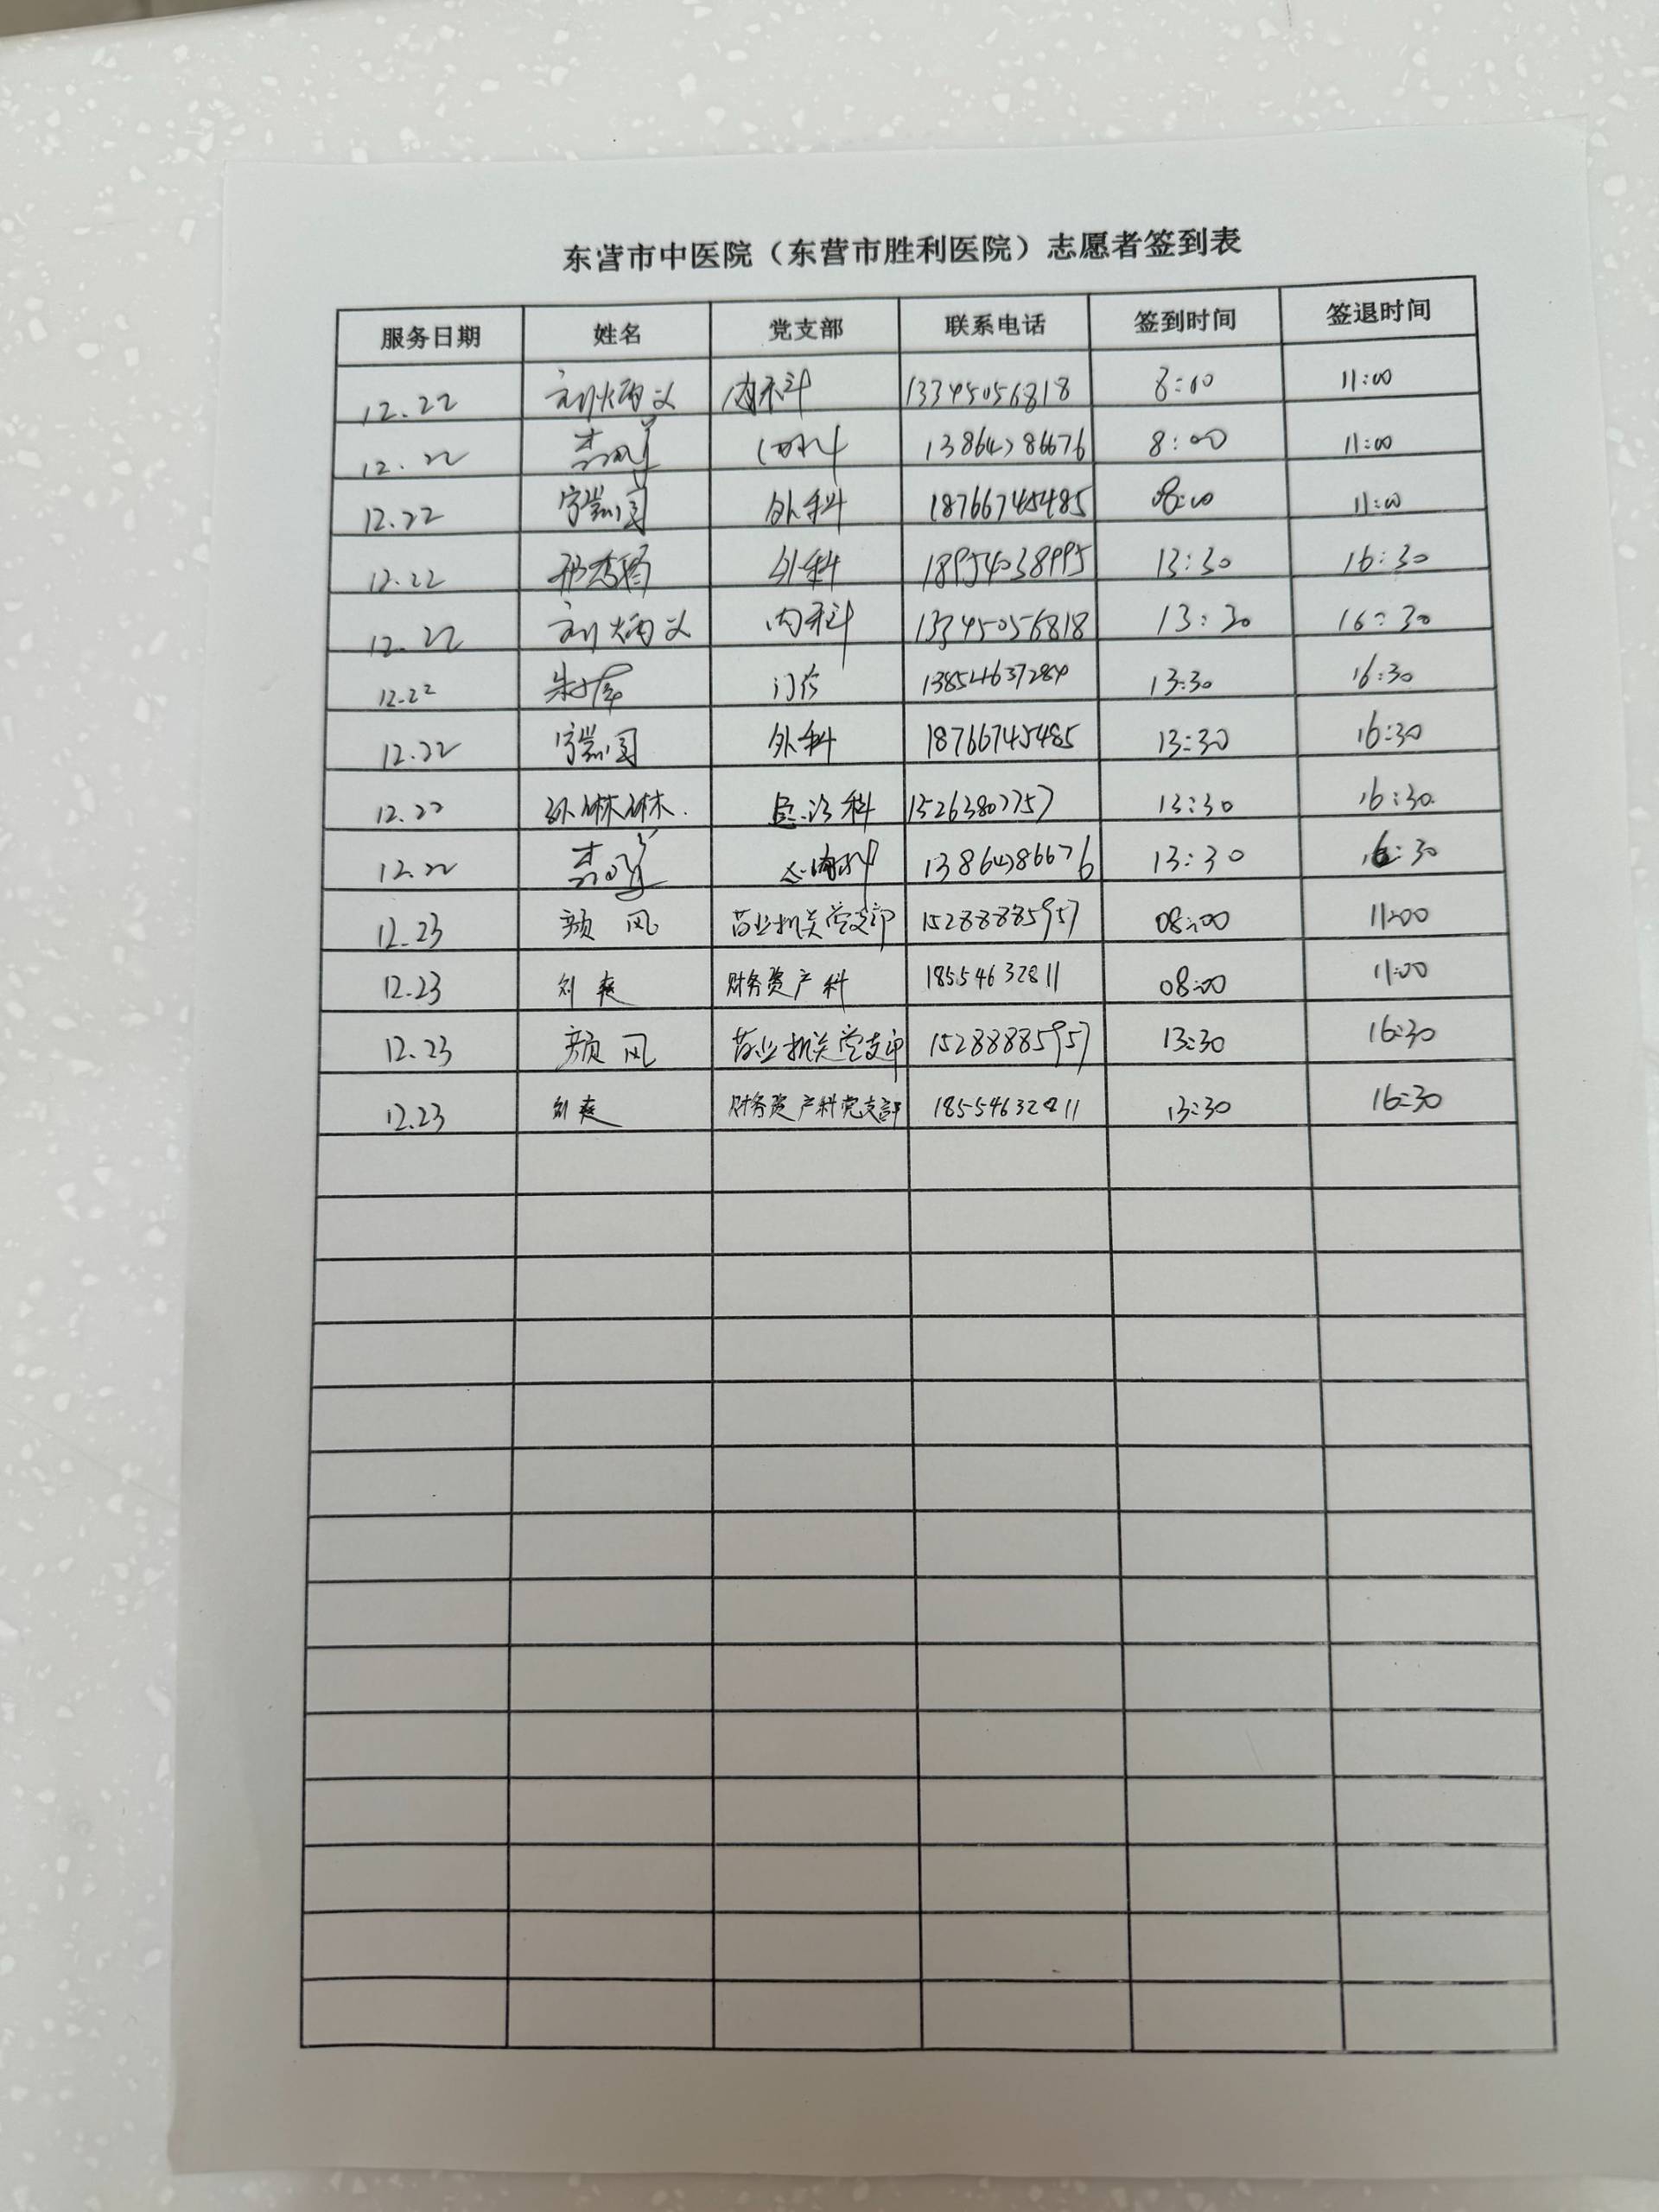 东营市中医院（东营市胜利医院）志愿者签到表
服务日期 姓名 党支部 联系电话 签到时间 签退时间
12.22 刘炳义 内科 13345056818 8:00 11:00
12.22 内科 13864786676 8:00 11:00
12.22 外科 18766745485 08:00 11:00
12.22 外科 18954038995 13:30 16:30
12.22 刘炳义 内科 13345056818 13:30 16:30
12.22 门诊 13854637284 13:30 16:30
12.22 外科 18766745485 13:30 16:30
12.22 孙琳琳. 急诊科 15263807757 13:30 16:30
12.22 13864786676 13:30 16:30
12.23 颜风 药业机关党支部 15288885957 08:00 11:00
12.23 刘爽 财务资产科 18554632811 08:00 11:00
12.23 颜风 药业机关党支部 15288885957 13:30 16:30
12.23 刘爽 财务资产科党支部 18554632811 13:30 16:30